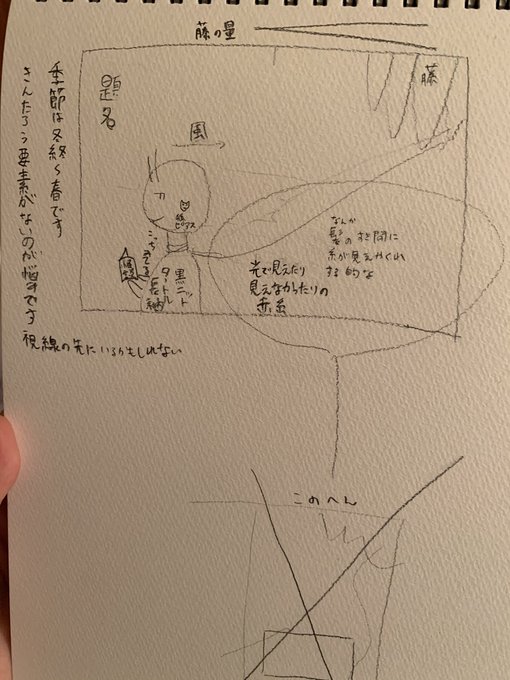 藤の量
藤
題名
風
ピアス
黒ニット
タートル
長袖
なんか
髪のすき間に
糸が見えかくれ
する的な
光で見えたり
見えなかったりの
赤糸
季節は冬終〜春です
きんたろう要素がないのが悩みです
視線の先にいるかもしれない
このへん